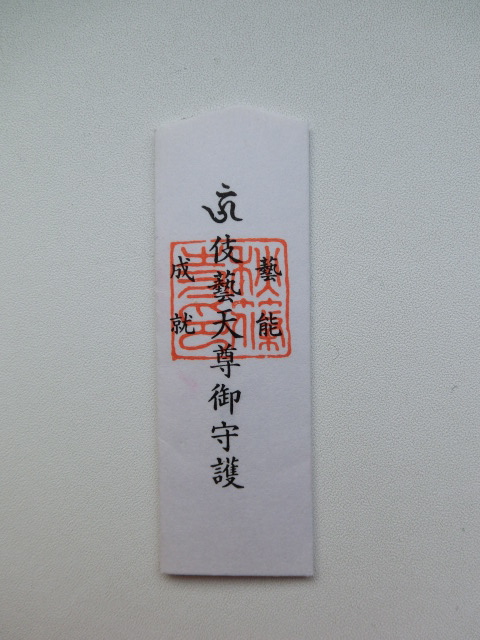 藝能
伎藝天尊御守護
成就